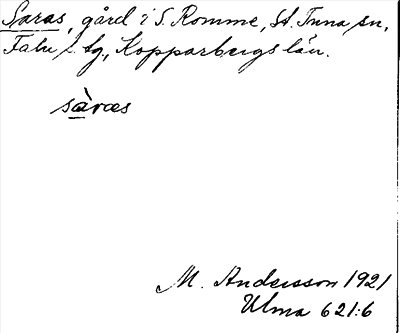 Saras, gård i S. Romme, St. Tuna sn,
Falu s. tg, Kopparbergs län.
sàras
M. Andersson 1921
Ulma 621:6